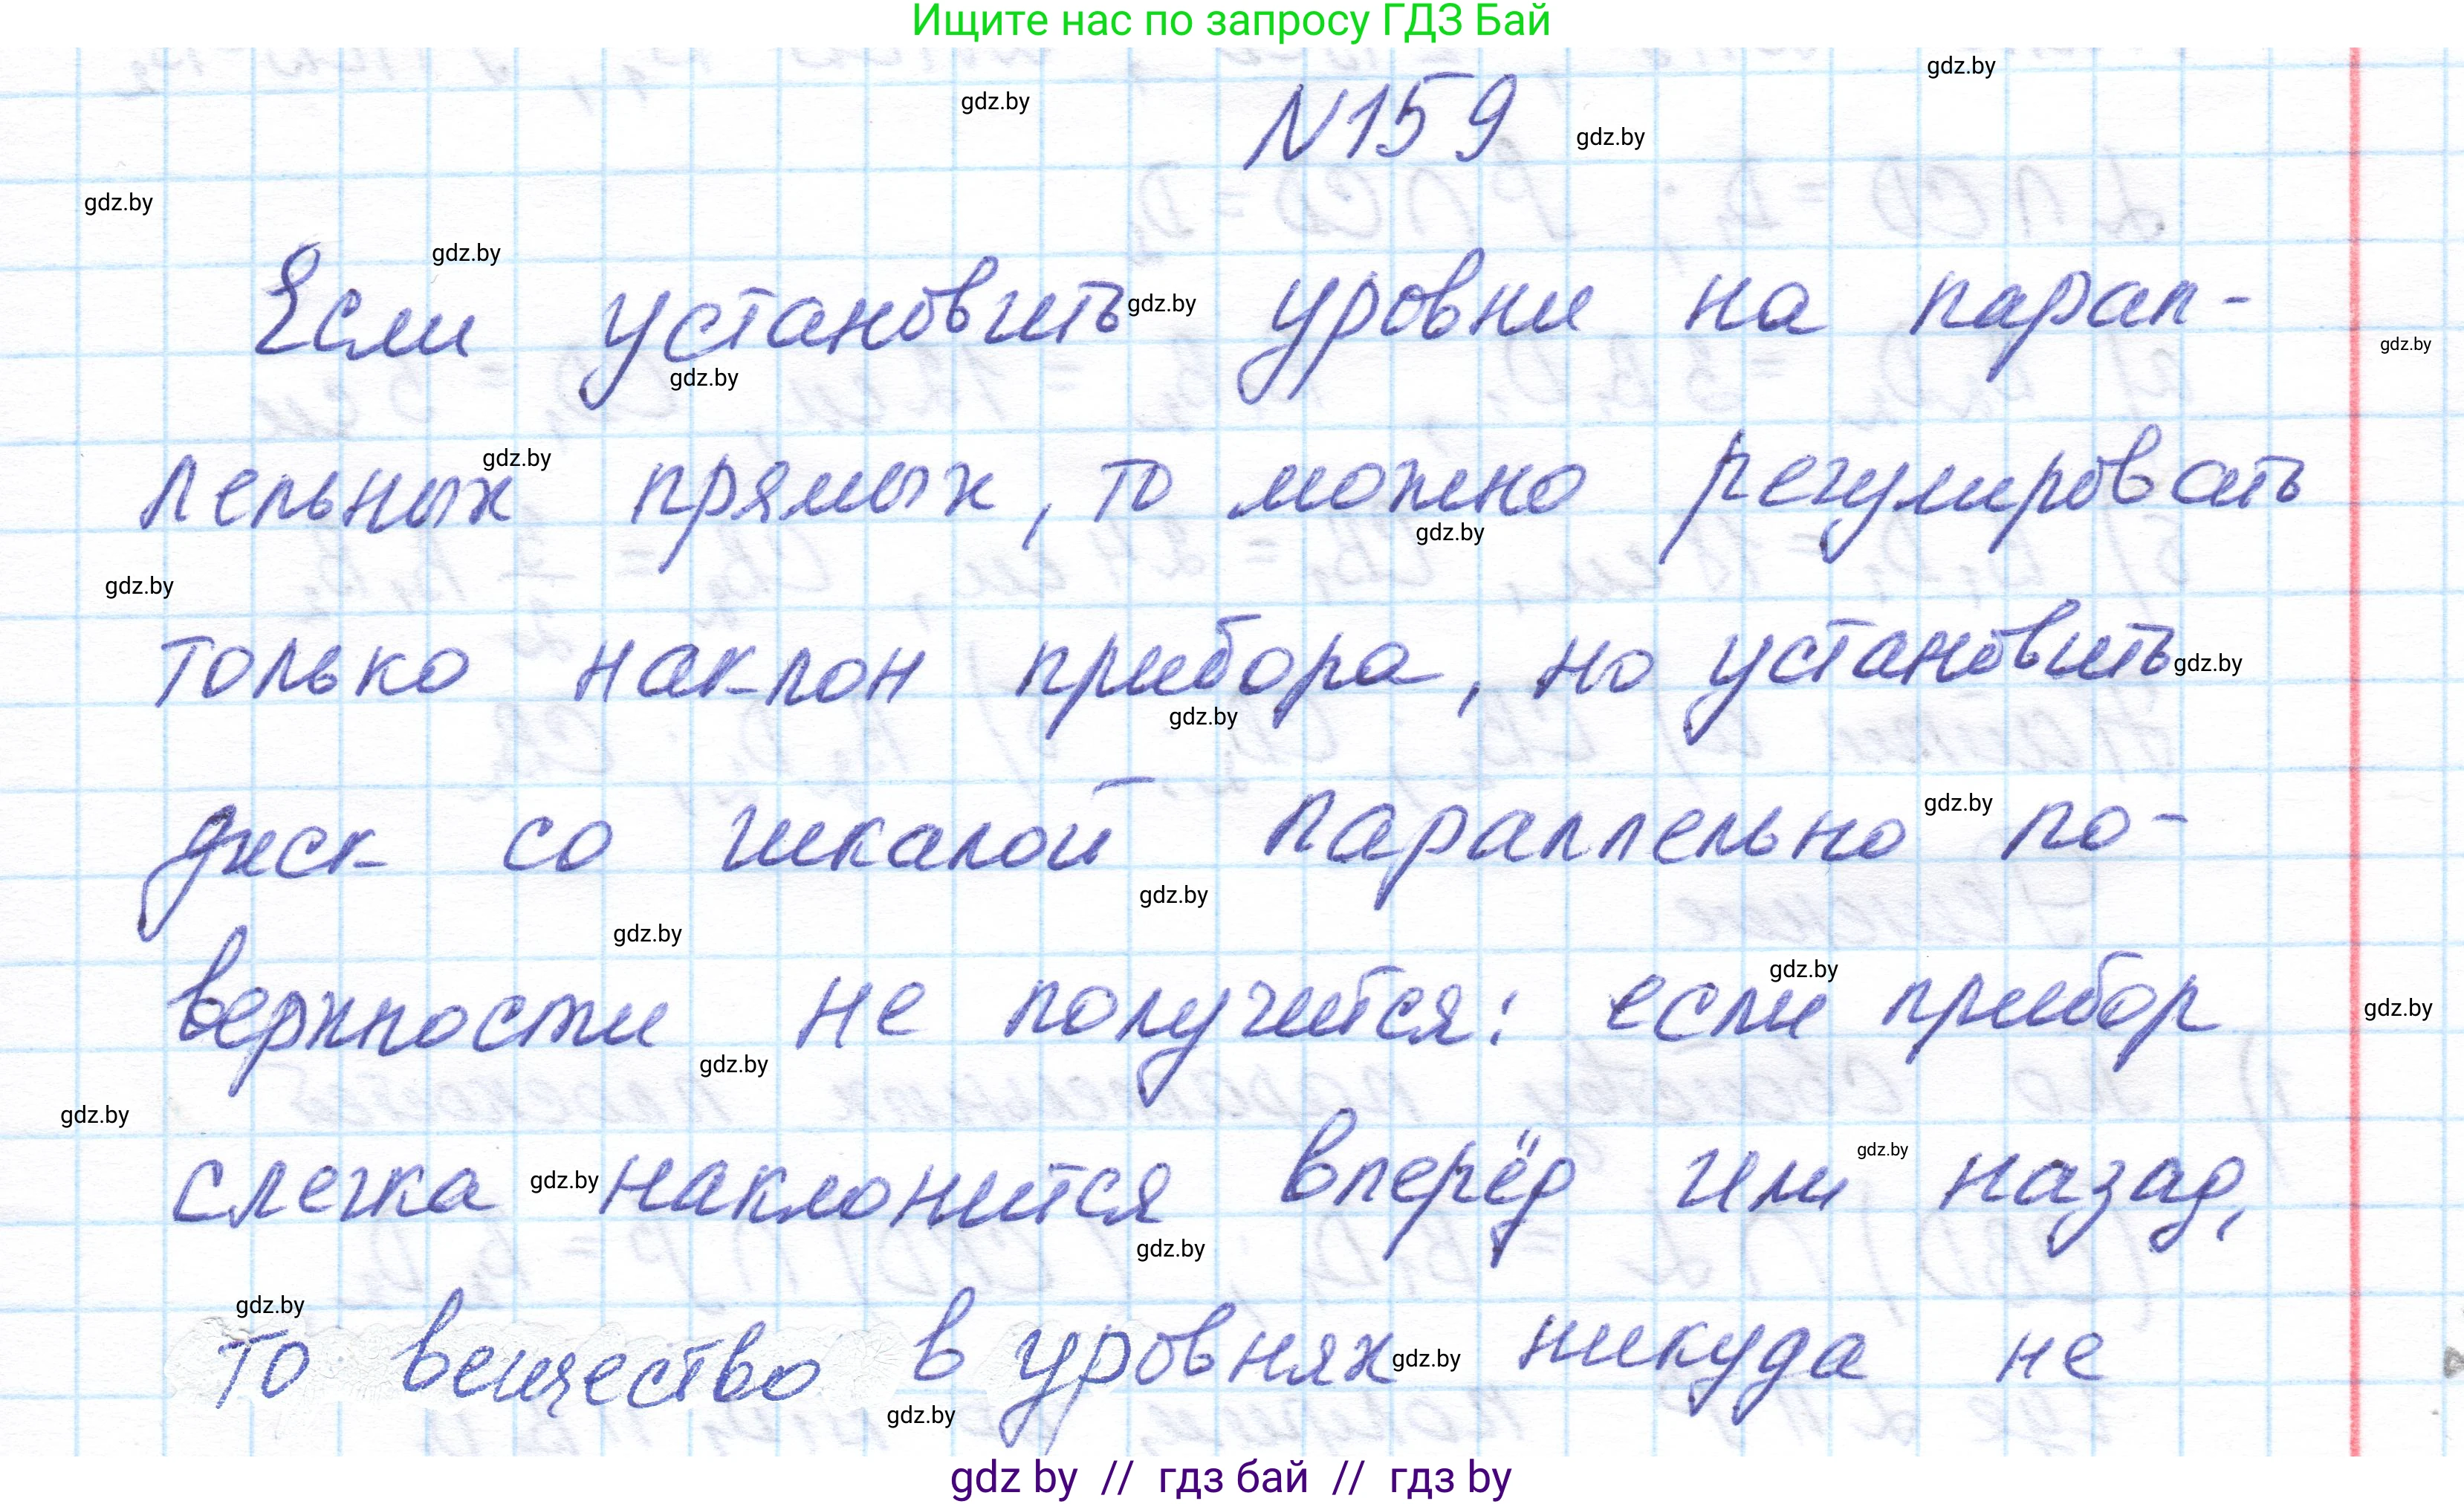 Ищите нас по запросу ГДЗ Бай
gdz.by
gdz.by
N159
gdz.by
gdz.by
gdz.by
Если установить gdz.by уровни на парал-
gdz.by
gdz.by
лельных gdz.by прямых, то можно регулировать
gdz.by
gdz.by
только наклон прибора, но установить gdz.by
gdz.by
диск со шкалой параллельно gdz.by по-
gdz.by
gdz.by
верхности не получится: если gdz.by прибор
gdz.by
gdz.by
gdz.by
слегка gdz.by наклонится вперёд или gdz.by назад,
gdz.by
gdz.by
то вещество в уровнях gdz.by никуда не
gdz.by
gdz by // гдз бай // гдз by